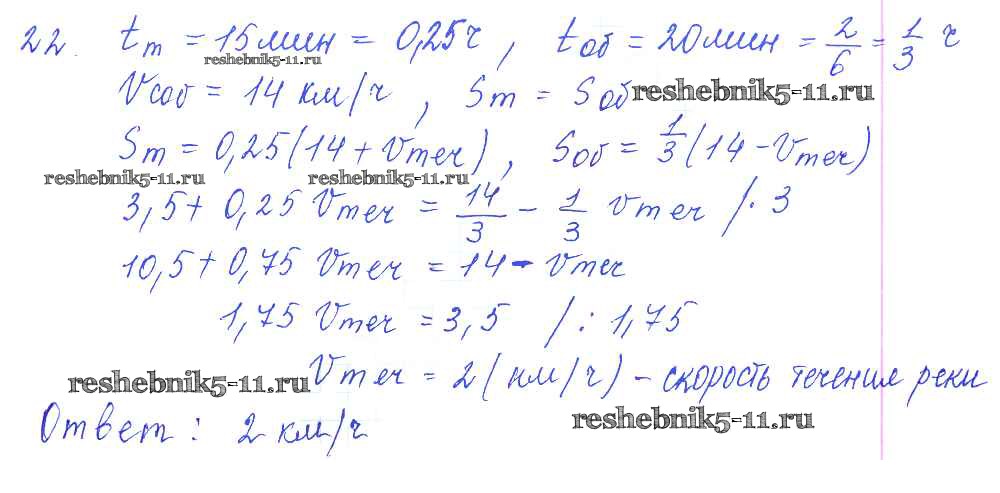 22. tт = 15 мин = 0,25 ч, tоб = 20 мин = 2/6 = 1/3 ч
reshebnik5-11.ru
Vсоб = 14 км/ч, Sт = Sоб
reshebnik5-11.ru
Sт = 0,25(14 + Vтеч), Sоб = 1/3(14 - Vтеч)
reshebnik5-11.ru reshebnik5-11.ru
3,5 + 0,25 Vтеч = 14/3 - 1/3 Vтеч /· 3
10,5 + 0,75 Vтеч = 14 - Vтеч
1,75 Vтеч = 3,5 /: 1,75
reshebnik5-11.ru Vтеч = 2 (км/ч) - скорость течения реки
reshebnik5-11.ru
Ответ: 2 км/ч